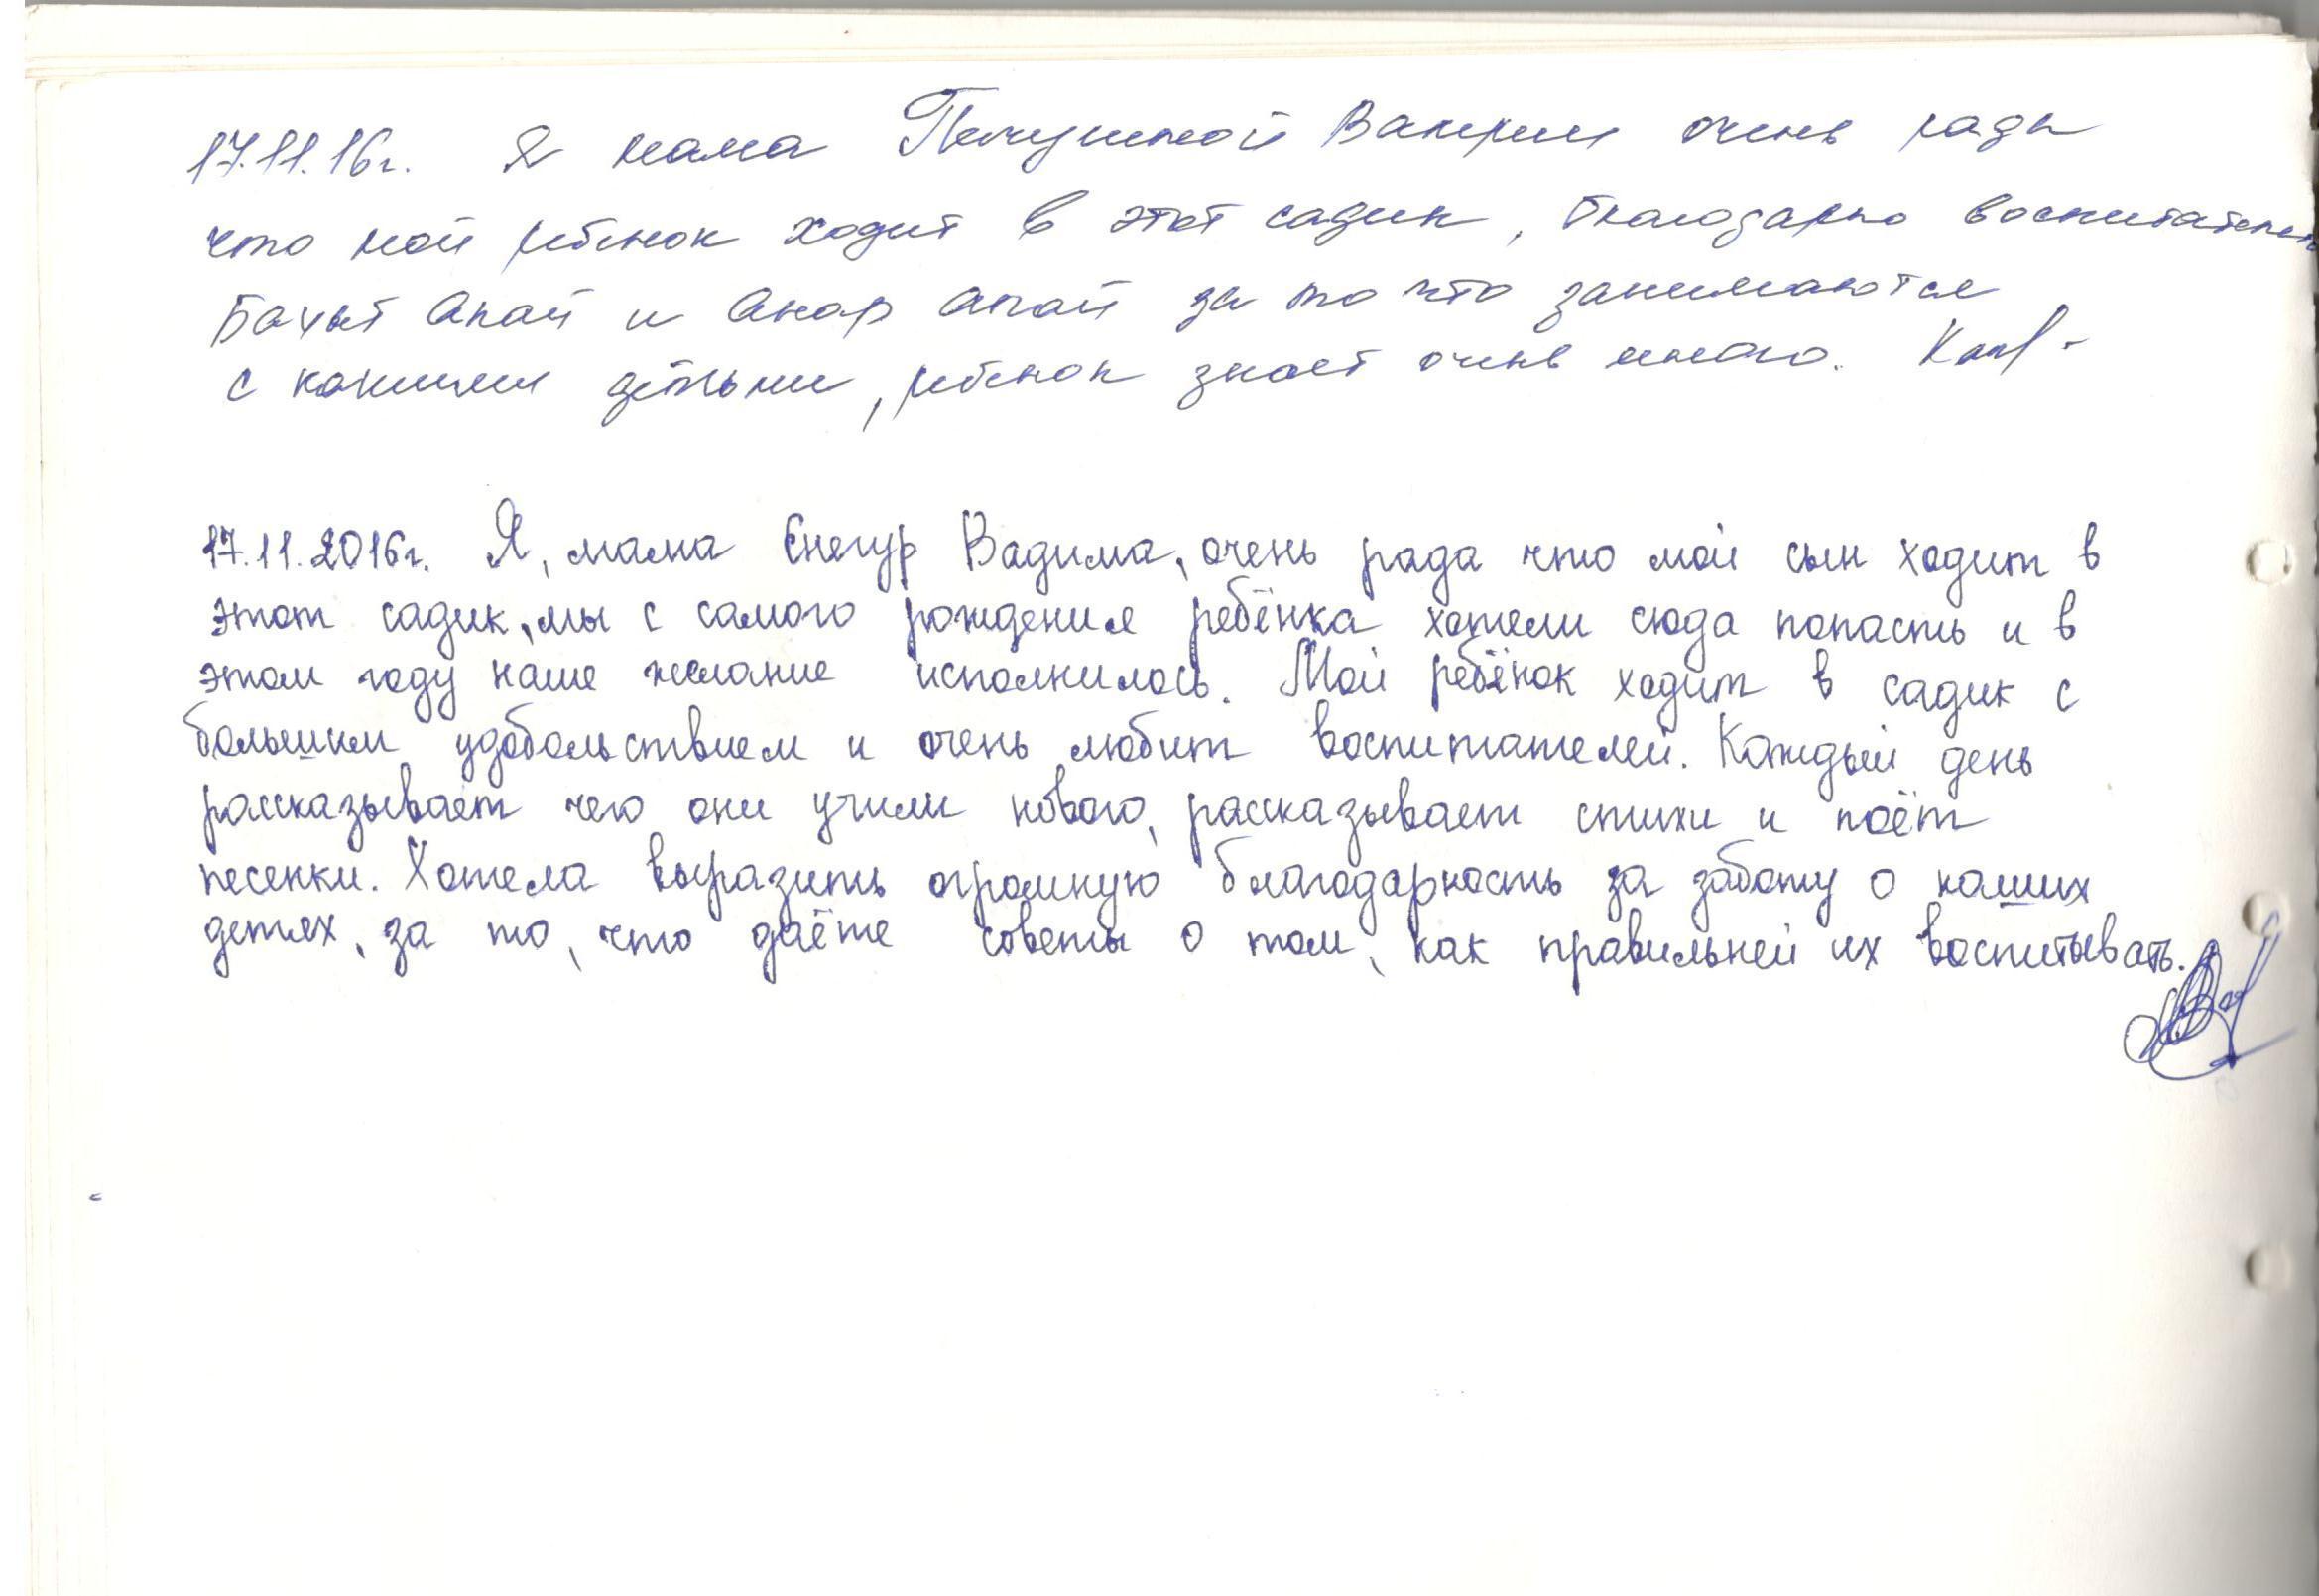 17.11.16г. Я мама Валерии очень рада
что мой ребенок ходит в этот садик, благодарю воспитателей
Бахыт апай и Анар апай за то что занимаются
с нашими детьми, ребенок знает очень много.
17.11.2016г. Я, мама Снегур Вадима, очень рада что мой сын ходит в
этот садик, мы с самого рождения ребёнка хотели сюда попасть и в
этом году наше желание исполнилось. Мой ребёнок ходит в садик с
большим удовольствием и очень любит воспитателей. Каждый день
рассказывает чего они учили нового, рассказывает стихи и поёт
песенки. Хотела выразить огромную благодарность за заботу о наших
детях, за то, что даёте советы о том, как правильней их воспитывать.